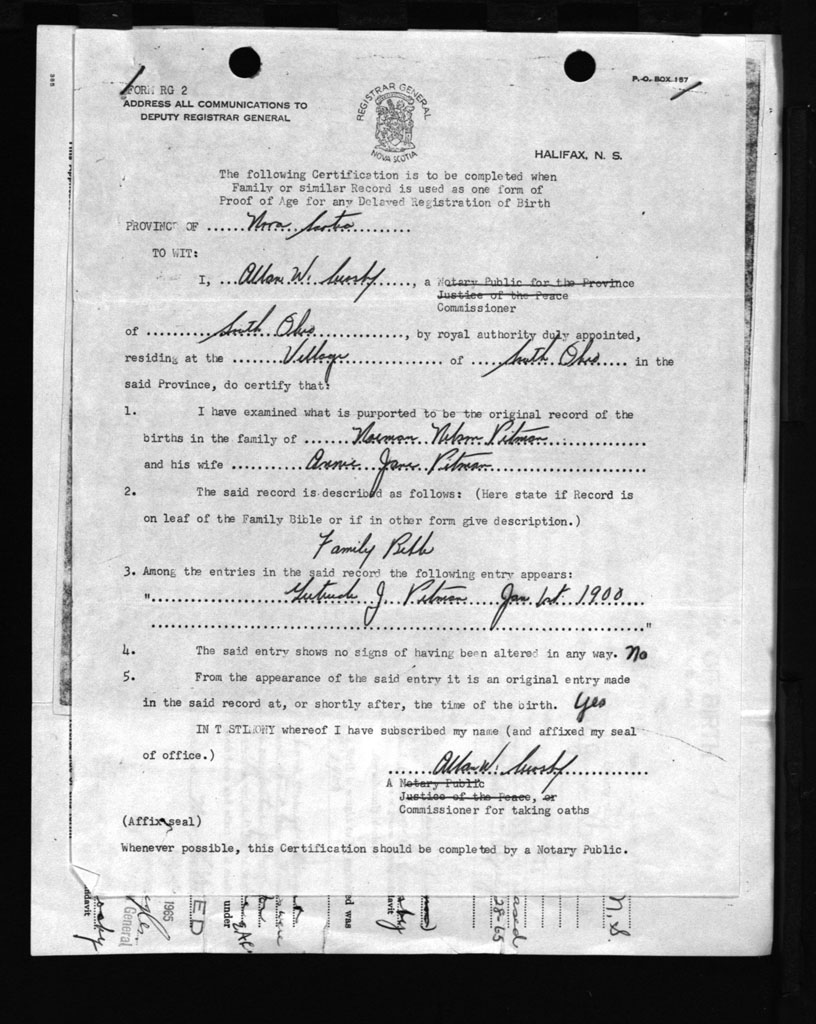 FORM RG 2
P. O. BOX 157
ADDRESS ALL COMMUNICATIONS TO
DEPUTY REGISTRAR GENERAL
REGISTRAR GENERAL
NOVA SCOTIA
HALIFAX, N. S.
The following Certification is to be completed when
Family or similar Record is used as one form of
Proof of Age for any Delayed Registration of Birth
PROVINCE OF ......Nova Scotia.........
TO WIT:
I, ..Allan W. Crosby....., a Notary Public for the Province
Justice of the Peace
Commissioner
of ..........South Ohio............., by royal authority duly appointed,
residing at the .......Village............... of .....South Ohio..... in the
said Province, do certify that:
1. I have examined what is purported to be the original record of the
births in the family of ......Norman Nelson Pitman...............
and his wife ...........Annie Jane Pitman......................
2. The said record is described as follows: (Here state if Record is
on leaf of the Family Bible or if in other form give description.)
Family Bible
3. Among the entries in the said record the following entry appears:
"..................Gertrude J Pitman Jan 1st 1900....
.................................................................."
4. The said entry shows no signs of having been altered in any way. No
5. From the appearance of the said entry it is an original entry made
in the said record at, or shortly after, the time of the birth. Yes
IN T STI ONY whereof I have subscribed my name (and affixed my seal
of office.)
......Allan W. Crosby...........
A Notary Public
Justice of the Peace, or
Commissioner for taking oaths
(Affix seal)
Whenever possible, this Certification should be completed by a Notary Public.
davit
osby
General
1965
ED
under
ed was
davit
sby
eased
28-65
N.S.